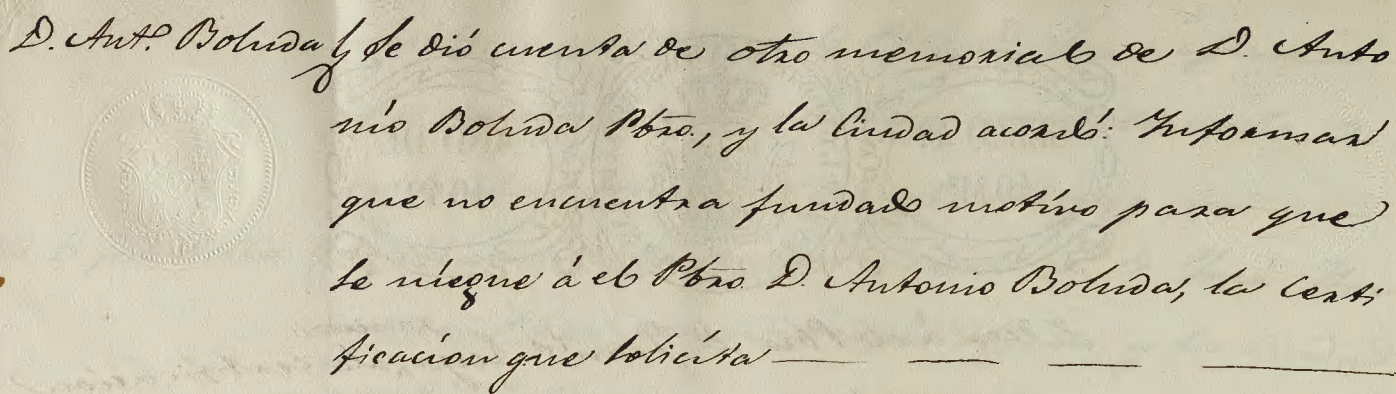 D. Ant.º Boluda Se dió cuenta de otro memorial de D. Anto
nio Boluda Pbro., y la Ciudad acordó: Informar
que no encuentra fundado motivo para que
se niegue á el Pbro. D. Antonio Boluda, la Certi
ficacion que solicita